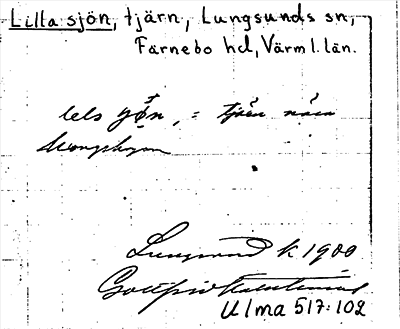 Lilla sjön, tjärn, Lungsunds sn,
Färnebo hd, Värml. län.
tjärn nära
Lungsund k 1900
Gottfrid Kallstenius
Ulma 517:102